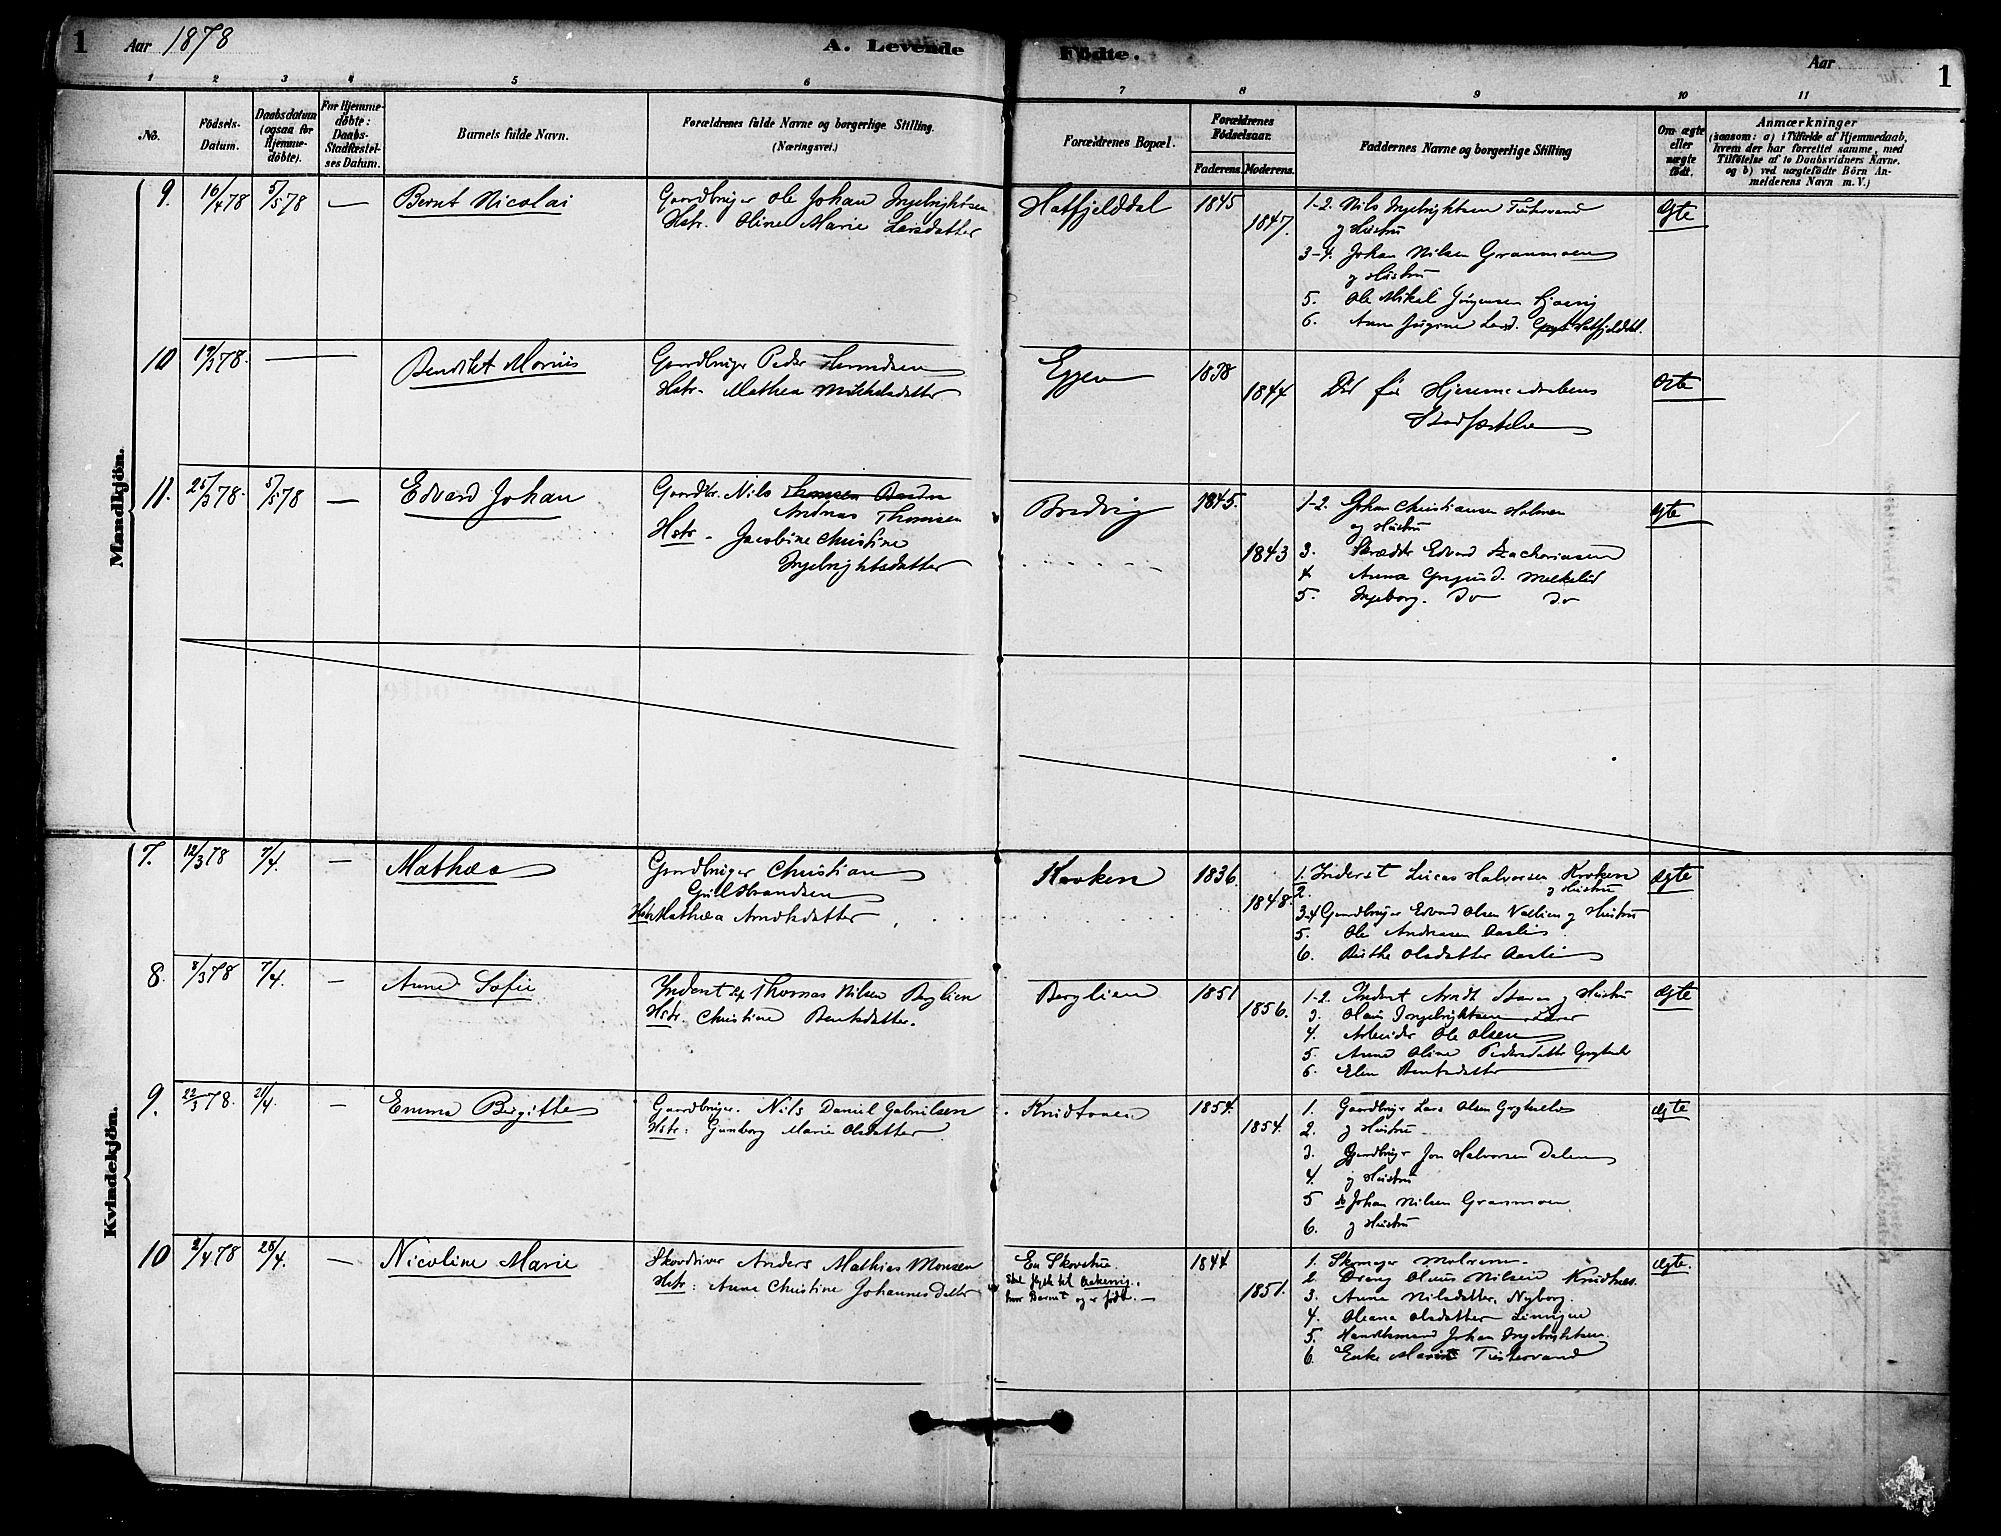 1 Aar 1878 A. Levende Födte. Aar 1
1 2 3 4 5 6 7 8 9 10 11
No. Födsels-Datum. Daabsdatum (ogsaa for Hjemme-döbte). For Hjemme-döbte: Daabs-Stadfæstel-ses Datum. Barnets fulde Navn. Forældrenes fulde Navne og borgerlige Stilling. (Næringsvei.) Forældrenes Bopæl. Forældrenes Födselsaar. Faderens. Moderens. Faddernes Navne og borgerlige Stilling Om ægte eller uægte født. Anmærkninger
(saasom: a) i Tilfælde af Hjemmedaab, hvem der har forrettet samme, med Tilföielse af to Daabsvidners Navne. og b) ved uægtefödte Börn Anmelderens Navn m. V.)
Mandkjön.
9. 16/4 78 5/5 78 — Bernt Nicolai Gaardbruger Ole Johan Ingebrigtsen Hatfjelddal 1845 1-2. Nils Ingebrigtsen Tustervand Ægte
Hstr. Oline Marie Larsdatter 1847. og Hustru
3-4. Johan Nilsen Granmoen
og Hustru
5. Ole Mikal Jörgensen
6. Anna Hatfjelddal.
10 19/3 78. — Bendikt Gaardbruger Peder 1838 Död för Hjemmedaabens Ægte
Hstr. Mathea Mikkelsdatter 1844 Stadfæstelse
11. 25/3 78. 5/5 78 — Edvard Johan Gaardbr. Nils Bredvig 1845. 1-2. Johan Christiansen Ægte
Andreas Thomsen og Hustru
Hstr. Jacobine Christine 1843 3. Edvard Zachariasen
Ingebrigtsdatter 4 Anna
5. Ingeborg. Do Do
Kvindekjön.
7. 12/3 78 7/4. — Mathæa Gaardbruger Christian Kroken 1836. 1. Inderst Lucas Halvorsen Kroken Ægte
2. og Hustru
Hstr Mathæa Arntsdatter 1848. 3-4 Gaardbruger Edvard Olsen og Hustru
5. Ole Andreasen Aaslie
6. Olsdatter Aaslie
8. 8/3 78 7/4 — Anne Sofie Inderst Thomas Nilsen Berglien Berglien 1851 1-2. Inderst Arndt og Hustru Ægte
Hstr. Christine Bentsdatter. 1856. 3. Ingebrigtsen
4. Arbeider Ole Olsen
5. Anne Oline Pedersdatter
6. Elen Bentsdatter
9. 22/3 78. 21/4. — Emma Birgitte Gaardbruger. Nils Daniel Gabrielsen 1854. 1. Gaardbruger Lars Olsen Ægte
Hstr: Gunborg Marie Olsdatter 1854. 2. og Hustru
3. Gaardbruger Jon Halvorsen Dalen
4. og Hustru
5 do Johan Nilsen Granmoen
6. og Hustru
10 2/4 78 28/4. — Nicoline Marie Anders Mathias Monsen 1844 1. Ægte.
Hstr: Anne Christine Johannes Datter hvor Barnet og er födt. — 1851. 2 Dreng Olaus Nilsen
3. Anna Nilsdatter, Nyborg.
4. Oleana Olsdatter
5. Handelsmand Johan Ingebrigtsen.
6. Enke Tustervand